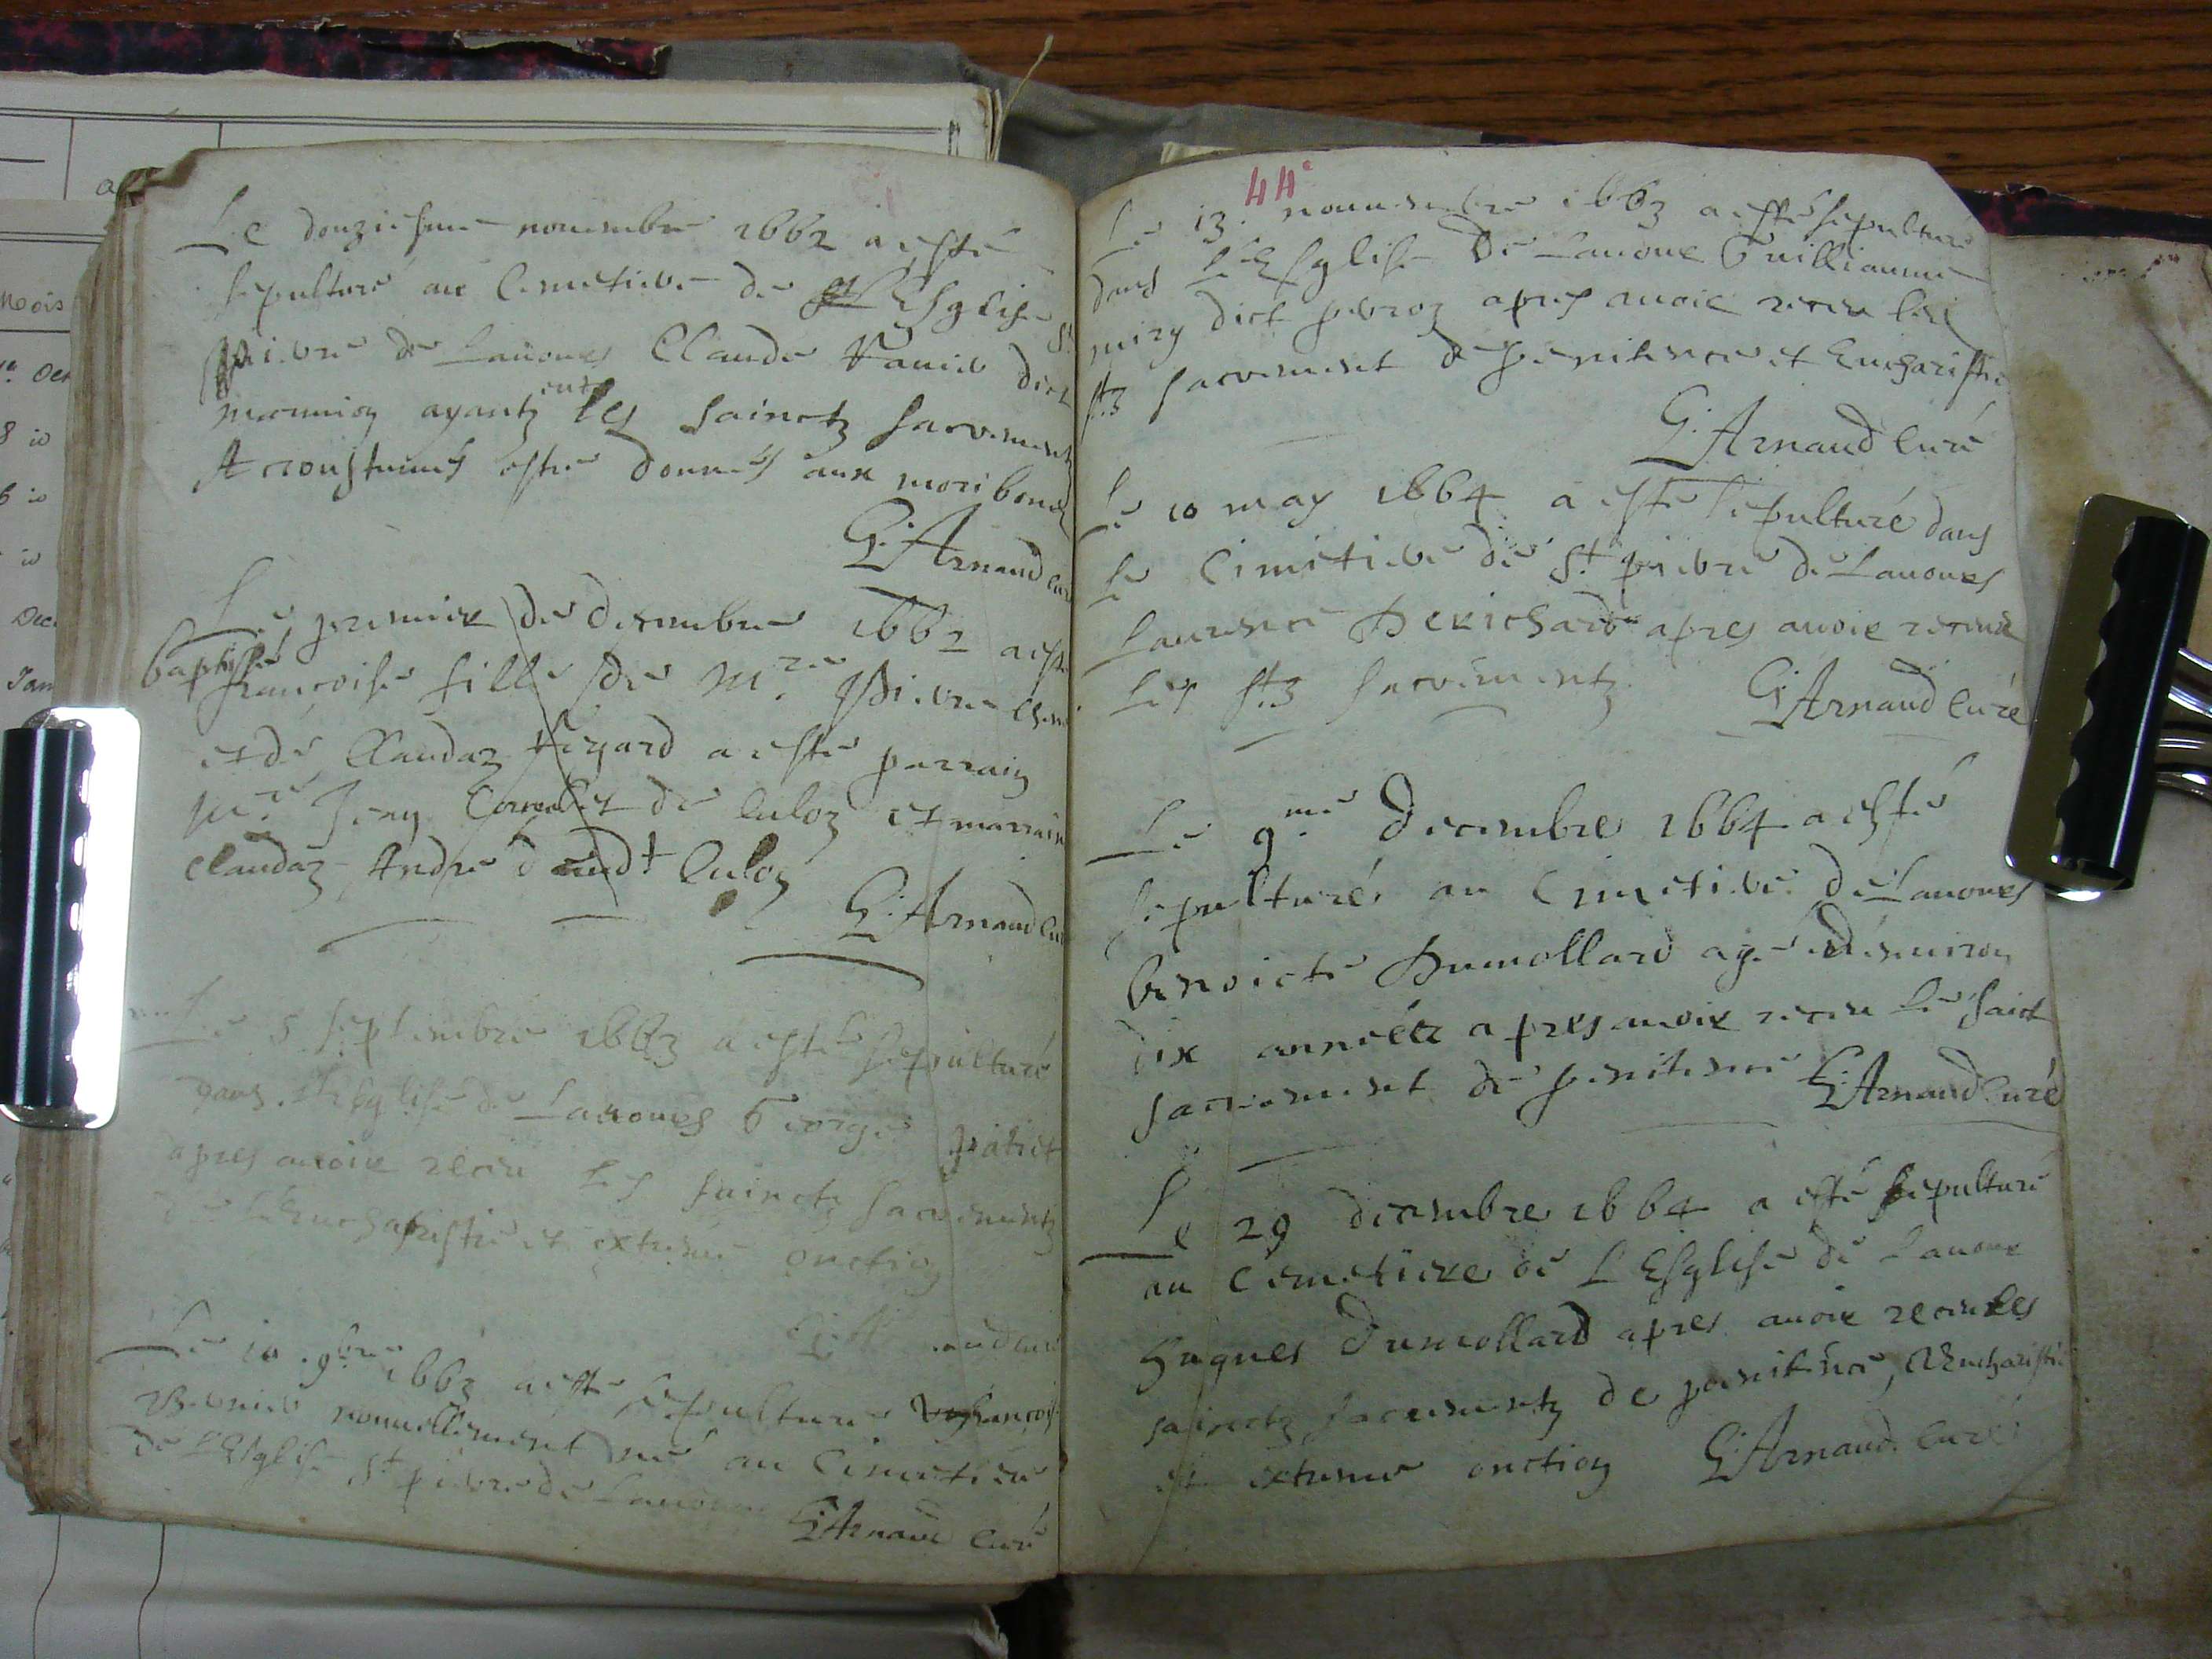 Le douziesme nouembre 1662 a esté
sepulturé au Cimetiere de L'Esglise St
Pierre de Lauours Claude dict
ayantz eutz les sainctz sacrements
Accoustumés estre donnés aux moribonds
G. Arnaud cur
Le premier de decembre 1662 a esté
baptisée francoise fille de Mre Pierre
et de Claudaz a esté parrain
Mre Jean de Culoz et marraine
Claudaz André dudt Culoz
G. Arnaud Cur
Le 5 septembre 1663 a esté sepulturé
dans l'Esglise de Lauours George
apres auoir receu les sainctz sacrementz
de L'Eucharistie et extreme onction
Le 10 9bre 1663 a esté sepulturé francois
nouuellement né au Cimetiere
de L'Esglise St pierre de Lauours
G. Arnaud Curé
44e
Le 13. nouembre 1663 a esté sepulturé
dans L'Esglise De Lauour Guilliaume
dict apres auoir receu les
stz sacrement de penitence et Eucharistie
G. Arnaud Curé
Le 10 may 1664 a esté sepulturé dans
le Cimitiere de St pierre de Lauours
Laurence Derichard apres auoir receu
les stz sacrementz. G. Arnaud Curé
Le 9me Decembre 1664 a esté
sepulturé au Cimetiere de Lauours
benoicte Dumollard agé d'enuiron
dix année apres auoir receu le sainct
sacrement de penitence G. Arnaud Curé
Le 29 decembre 1664 a esté sepulturé
au Cemetiere de L'Esglise de Lauour
hugues Dumollard apres auoir receu les
sainctz sacrementz de penitence, Eucharistie
et extreme onction G. Arnaud. Curé